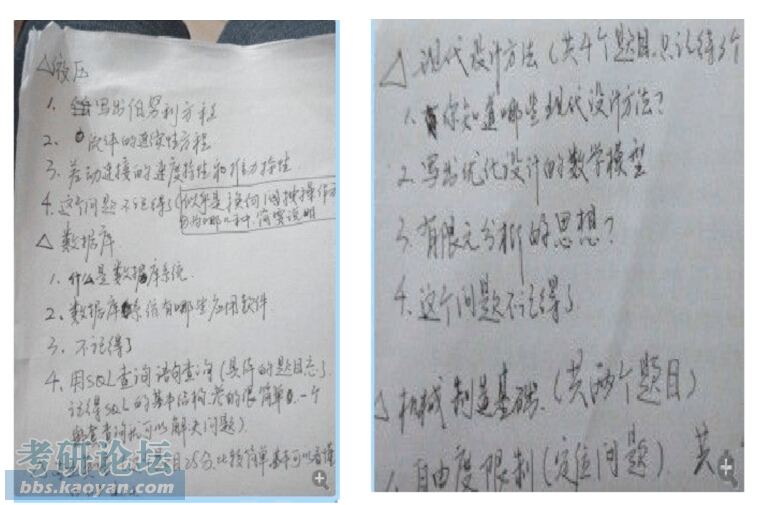 △液压
1. 写出伯努利方程
2. 流体的连续性方程
3. 差动连接的速度特性和推力特性.
4. 这个问题不记得了(似乎是换向阀按操作方
分为哪几种,简要说明
△数据库
1. 什么是数据库系统.
2. 数据库系统有哪些应用软件
3. 不记得了
4. 用SQL查询语句查询(具体的题目忘了
记得SQL的基本结构,考的很简单,一个
查询就可以解决问题)
25分,比较简单基本可以看懂
考研论坛
bbs.kaoyan.com
△现代设计方法(共4个题目,只记得3个
1. 你知道哪些现代设计方法?
2. 写出优化设计的数学模型
3. 有限元分析的思想?
4. 这个问题不记得了
△机械制造基础.(共两个题目)
1. 自由度限制(定位问题)